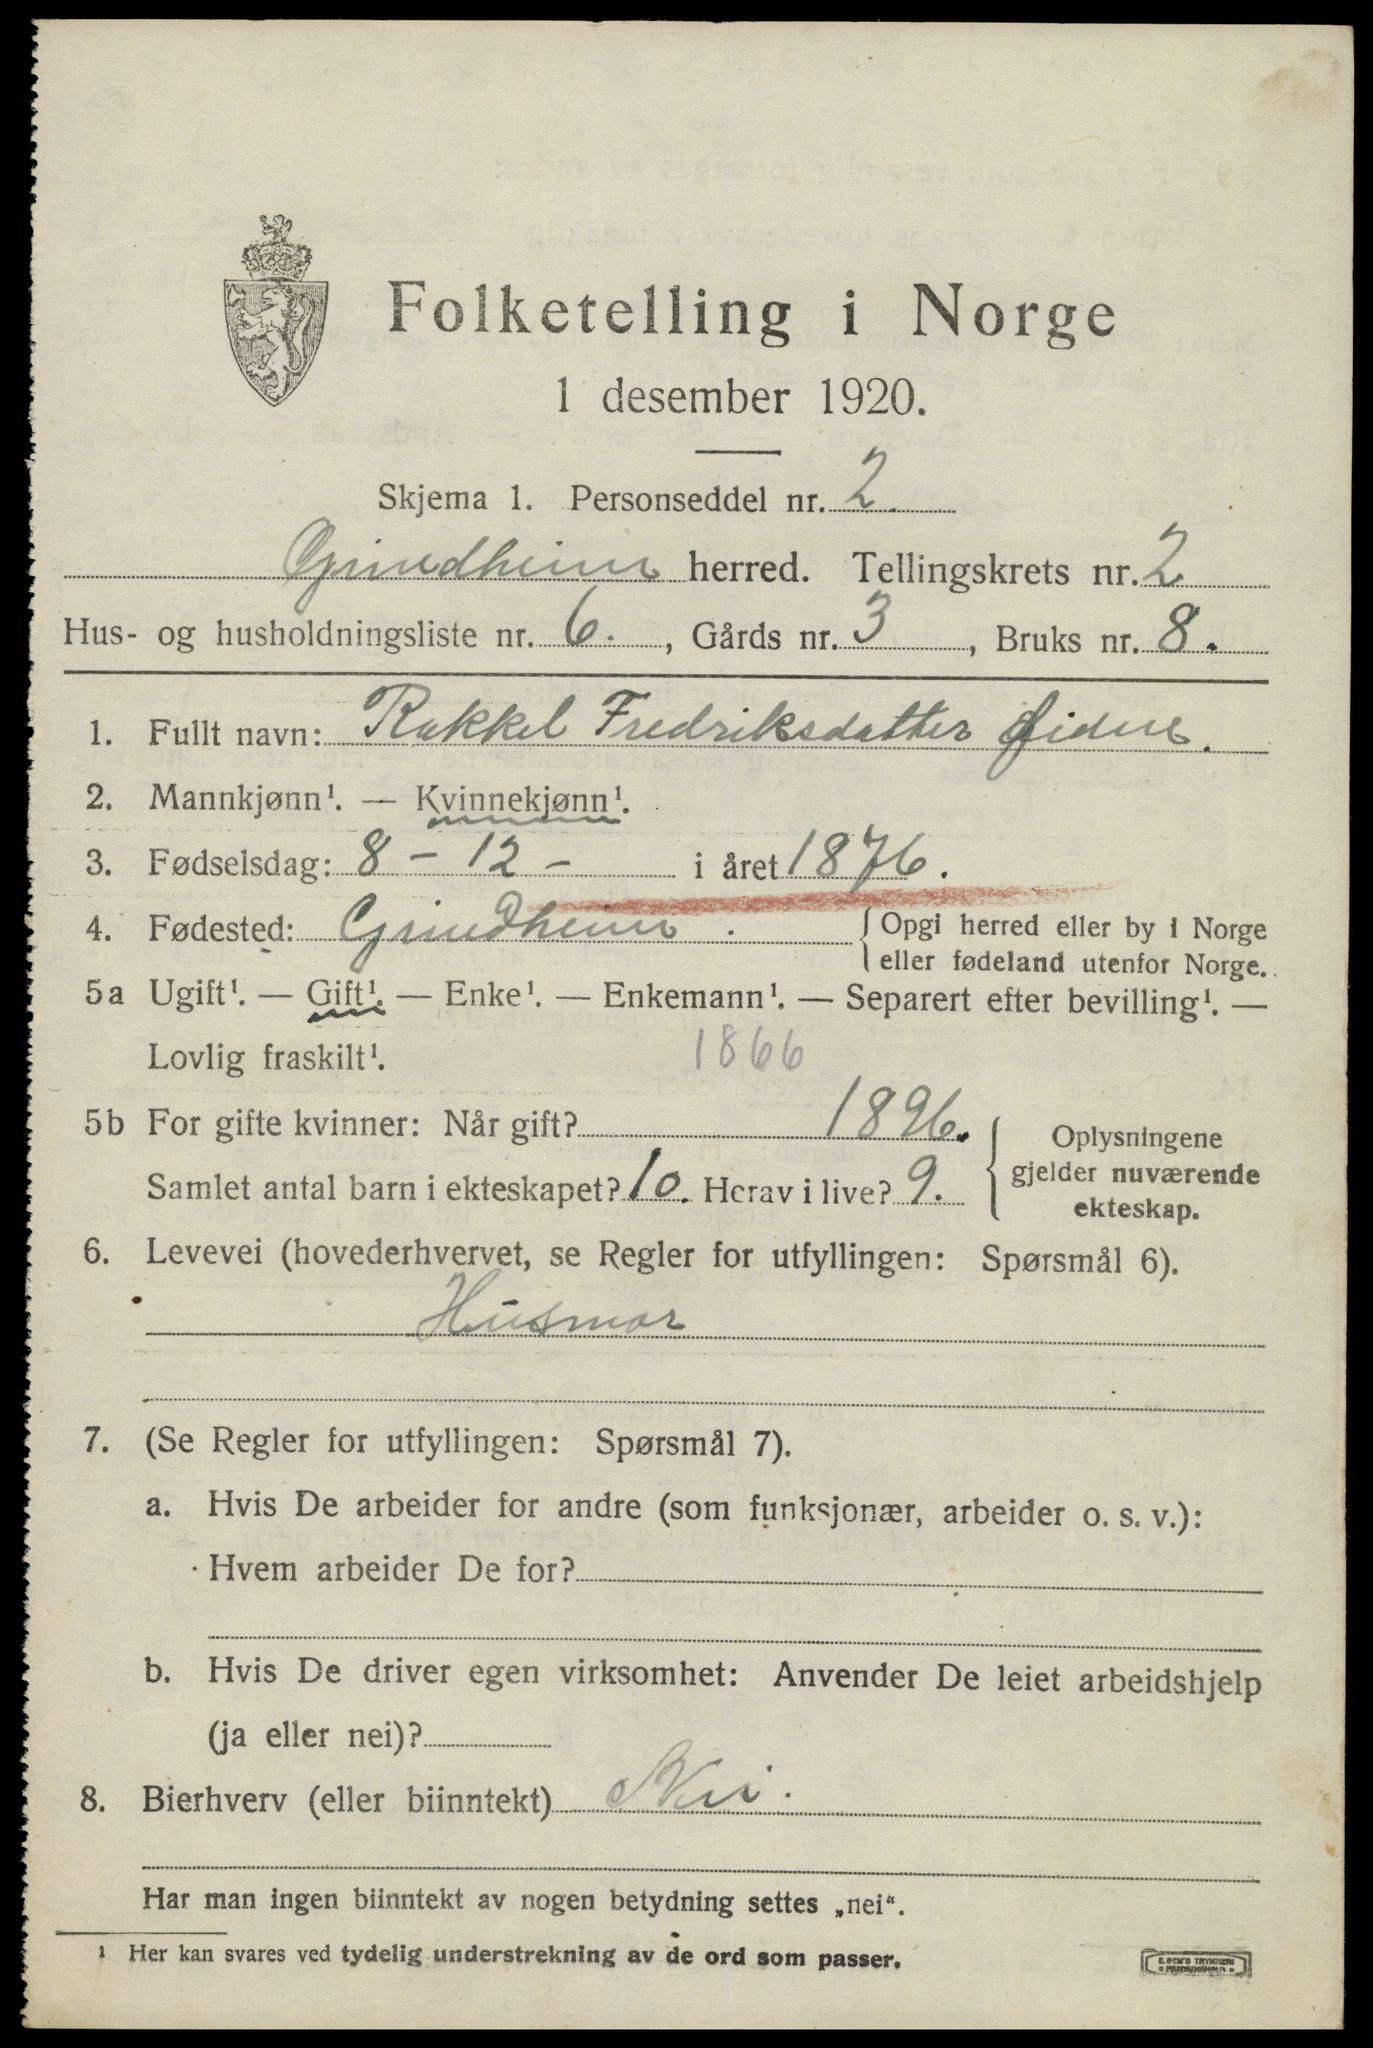 Folketelling i Norge
1 desember 1920.
Skjema 1. Personseddel nr. 2.
Grindheim herred. Tellingskrets nr. 2
Hus- og husholdningsliste nr. 6. , Gårds nr. 3 , Bruks nr. 8.
1. Fullt navn: Rakkel Fredriksdatter
2. Mannkjønn¹. — Kvinnekjønn¹.
3. Fødselsdag: 8 – 12 – i året 1876.
4. Fødested: Grindheim . { Opgi herred eller by i Norge
eller fødeland utenfor Norge.
5a Ugift¹. — Gift¹. — Enke¹. — Enkemann¹. — Separert efter bevilling¹. —
Lovlig fraskilt¹. 1866
5b For gifte kvinner: Når gift? 1896. { Oplysningene
gjelder nuværende
ekteskap.
Samlet antal barn i ekteskapet? 10. Herav i live? 9.
6. Levevei (hovederhvervet, se Regler for utfyllingen: Spørsmål 6).
Husmor
7. (Se Regler for utfyllingen: Spørsmål 7).
a. Hvis De arbeider for andre (som funksjonær, arbeider o. s. v.):
Hvem arbeider De for?
b. Hvis De driver egen virksomhet: Anvender De leiet arbeidshjelp
(ja eller nei)?
8. Bierhverv (eller biinntekt) Nei.
Har man ingen biinntekt av nogen betydning settes „nei“.
¹ Her kan svares ved tydelig understrekning av de ord som passer.